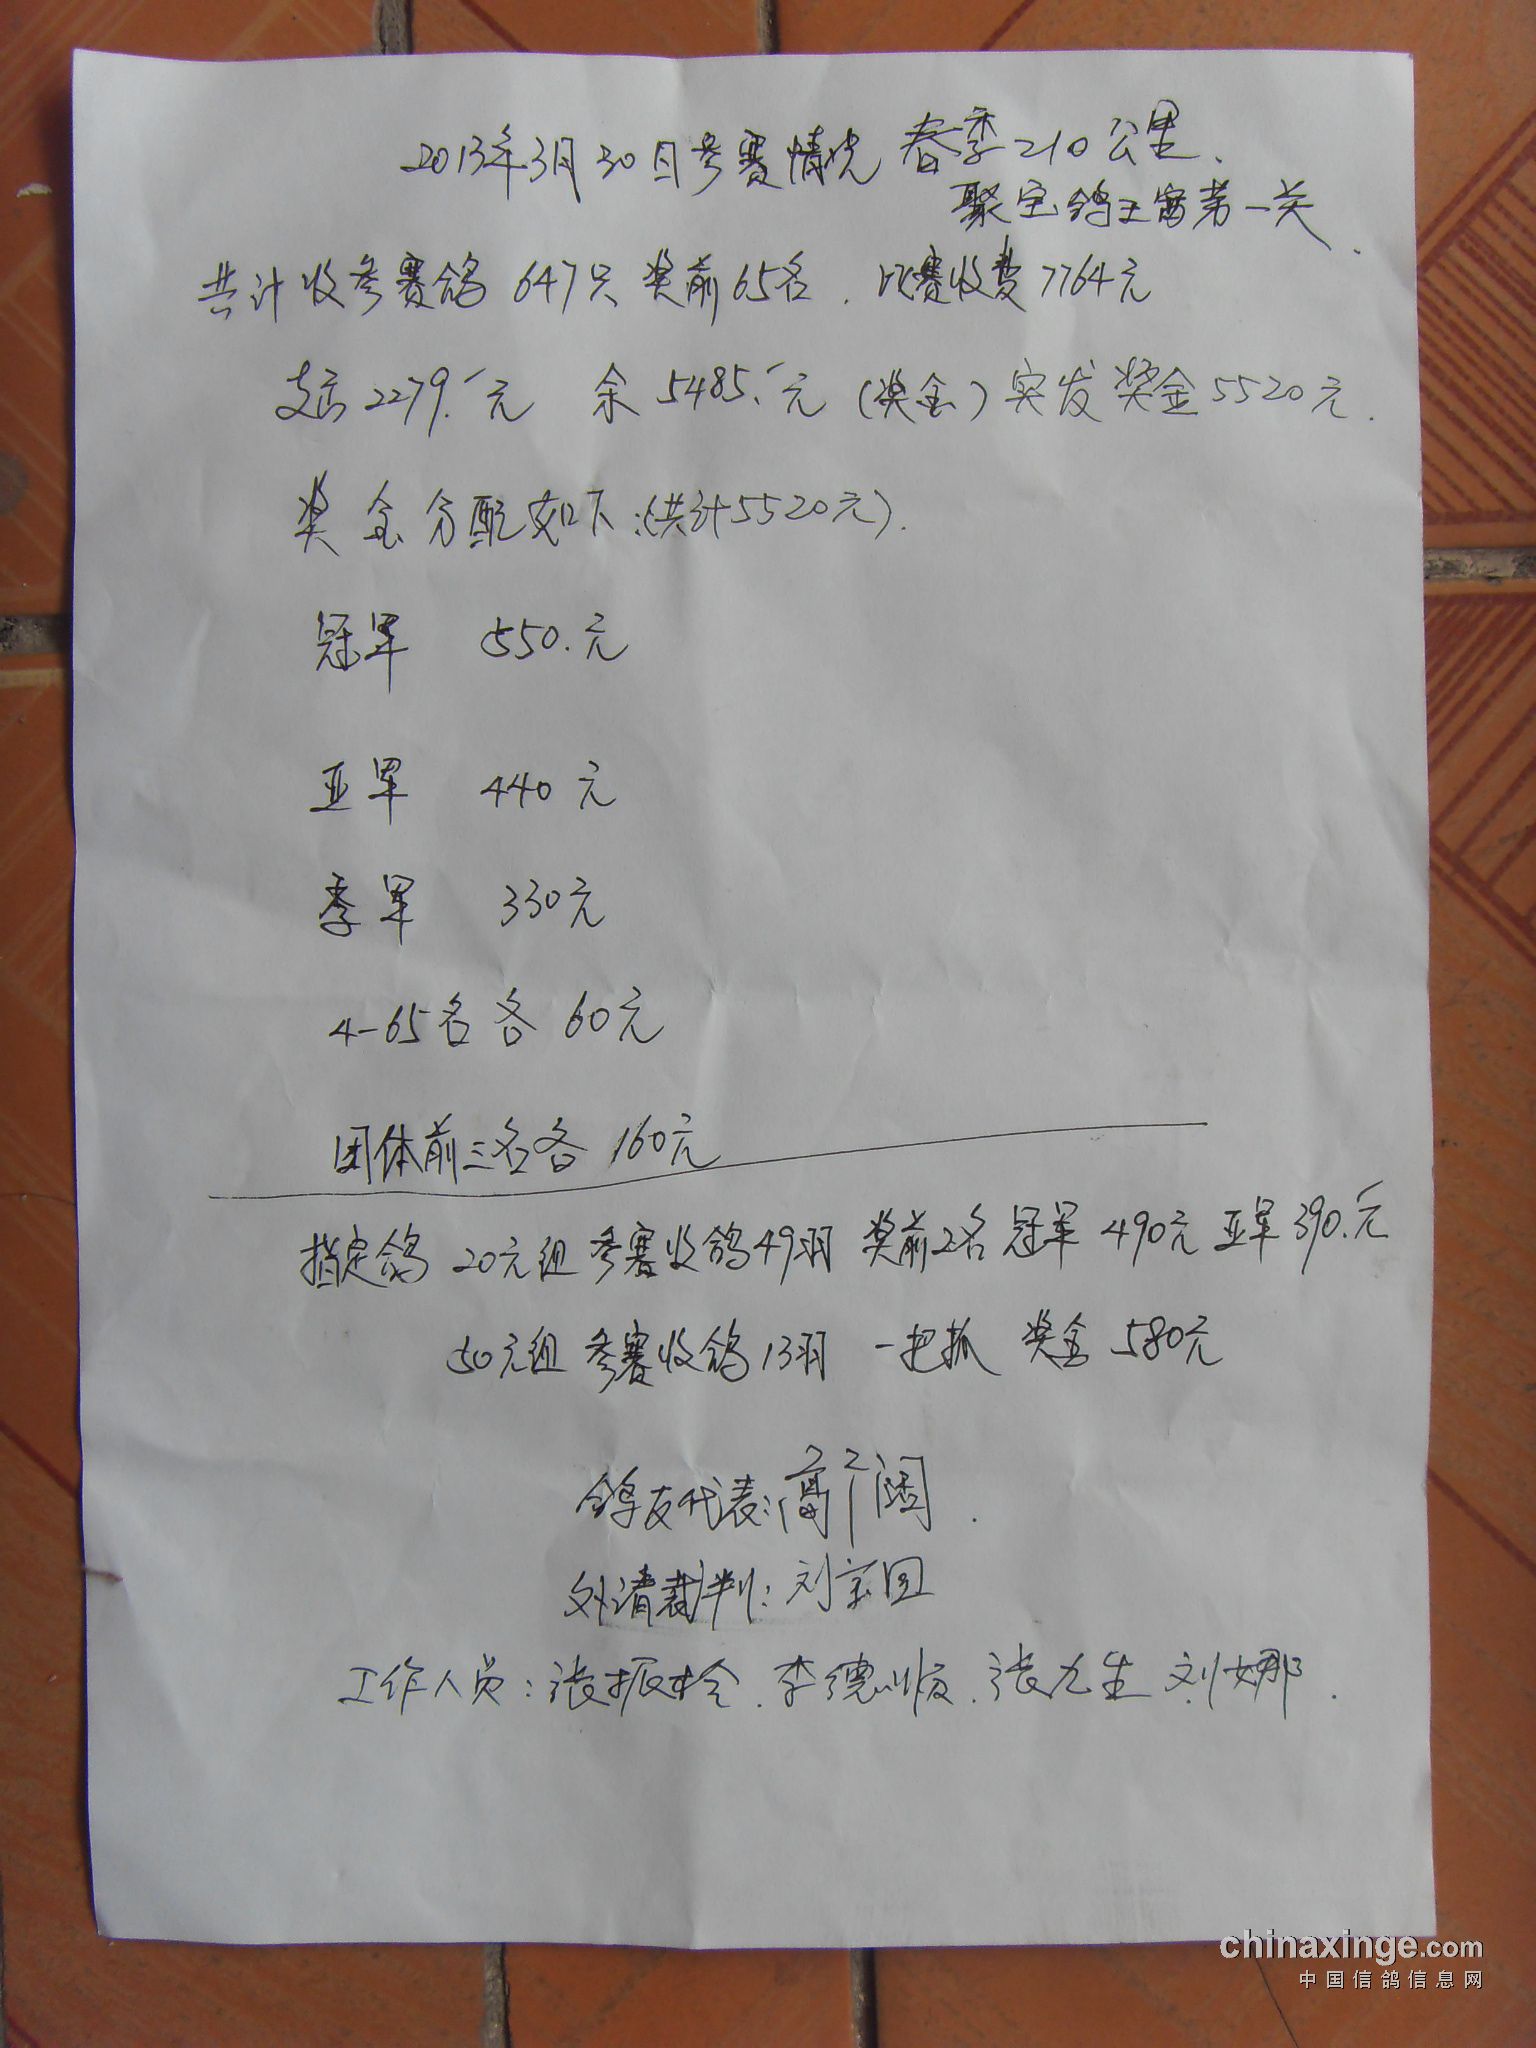 2013年3月30日参赛情况 春季210公里、
聚宝鸽王赛第一关.
共计收参赛鸽 647只 奖前65名. 比赛收费7764元
支店2279.元 余5485.元(奖金)实发奖金5520元.
奖金分配如下:(共计5520元).
冠军 550.元
亚军 440元
季军 330元
4-65名各 60元
团体前三名各 160元
指定鸽 20元组 参赛收鸽49羽 奖前2名 冠军490元 亚军390.元
50元组 参赛收鸽13羽 一把抓 奖金580元
鸽友代表:
外请裁判: 刘宗
工作人员:张振栓.李德顺.张九生 刘娜.
chinaxinge.com
中国信鸽信息网